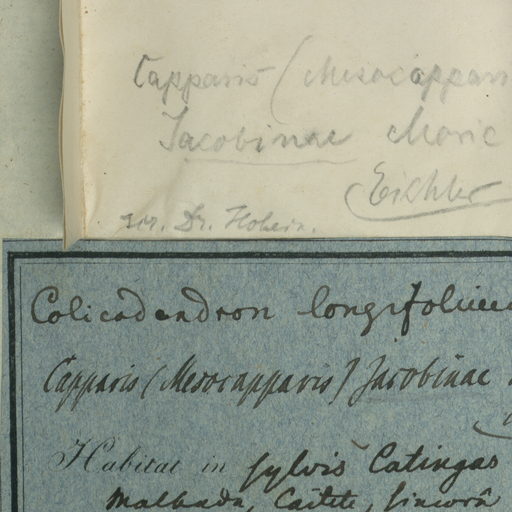 Capparis (Mesocapparis
Jacobinae Moric
Eichler
Dr. Hohein.
Colicodendron longifolium
Capparis (Mesocapparis) Jacobinae
Habitat in sylvis Catingas
Malhada, Caitete, Sincorâ